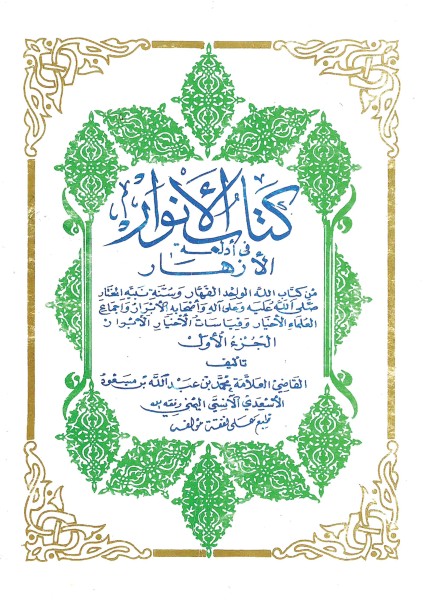 كتاب الأنوار
في أدلة
الأزهار
من كتاب الله الواحد القهار وسنة نبيه المختار
صلى الله عليه وعلى آله وأصحابه الأبرار وإجماع
العلماء الأخيار وقياسات الأخيار
الجزء الأول
تأليف
القاضي العلامة محمد بن عبد الله بن مسعود
الأسعدي الآنسي اليمني
طبع على نفقة مؤلفه